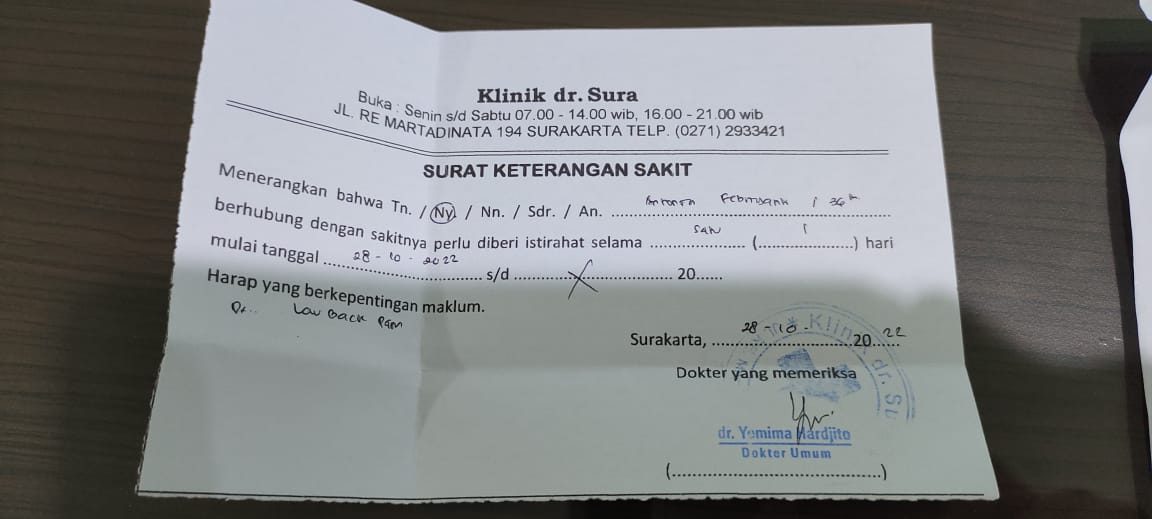 Klinik dr. Sura
Buka : Senin s/d Sabtu 07.00 - 14.00 wib, 16.00 - 21.00 wib
JL. RE MARTADINATA 194 SURAKARTA TELP. (0271) 2933421
SURAT KETERANGAN SAKIT
Menerangkan bahwa Tn. / Ny. / Nn. / Sdr. / An. ........ / 36 th
berhubung dengan sakitnya perlu diberi istirahat selama satu ( 1 ) hari
mulai tanggal 28 - 10 - 2022 s/d ........ 20......
Harap yang berkepentingan maklum.
Low Back Pain
Surakarta, 28 - 10 - 2022
Klinik dr. Su
Dokter yang memeriksa
dr. Yemima Hardjito
Dokter Umum
(........................................)